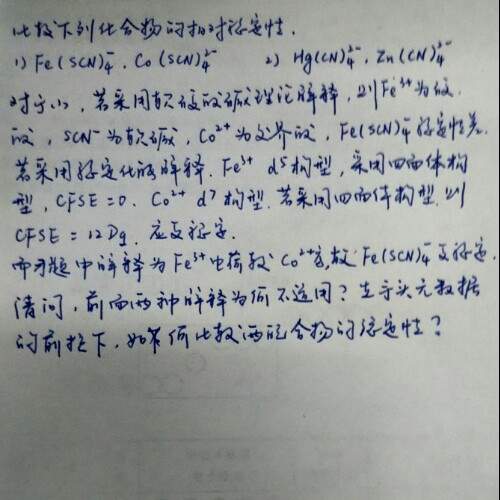 比较下列化合物的相对稳定性.
1) Fe(SCN)₄⁻, Co(SCN)₄²⁻  2) Hg(CN)₄²⁻, Zn(CN)₄²⁻
对于1), 若采用软硬酸碱理论解释, 则Fe³⁺为硬
酸, SCN⁻为软碱, Co²⁺为交界酸, Fe(SCN)₄⁻稳定性差.
若采用稳定化能解释. Fe³⁺ d⁵构型, 采用四面体构
型, CFSE=0. Co²⁺ d⁷构型. 若采用四面体构型. 则
CFSE=12Dq. 应更稳定.
而习题中解释为Fe³⁺电荷较Co²⁺高, 故Fe(SCN)₄⁻更稳定.
请问, 前面两种解释为何不适用? 在于头无数据
的前提下, 如何比较两配合物的稳定性?